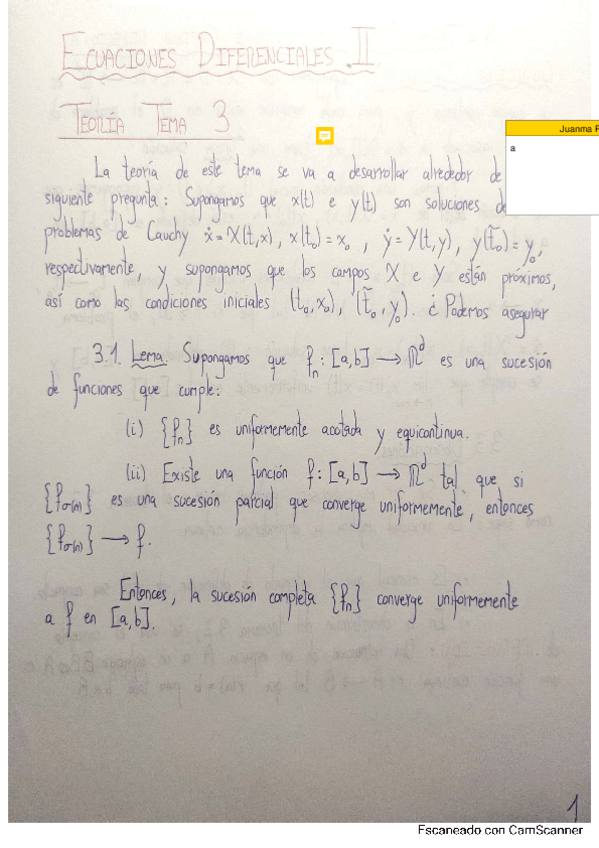 ECUACIONES DIFERENCIALES II
TEORÍA TEMA 3
Juanma
a
La teoría de este tema se va a desarrollar alrededor de
siguiente pregunta: Supongamos que x(t) e y(t) son soluciones de
problemas de Cauchy ẋ = X(t,x), x(t₀) = x₀, ẏ = Y(t,y), y(t̃₀) = y₀,
respectivamente, y supongamos que los campos X e Y están próximos,
así como las condiciones iniciales (t₀,x₀), (t̃₀,y₀). ¿Podemos asegurar
3.1. Lema. Supongamos que fₙ: [a,b] → ℝᵈ es una sucesión
de funciones que cumple:
(i) {fₙ} es uniformemente acotada y equicontinua.
(ii) Existe una función f: [a,b] → ℝᵈ tal que si
{f_σ(n)} es una sucesión parcial que converge uniformemente, entonces
{f_σ(n)} → f.
Entonces, la sucesión completa {fₙ} converge uniformemente
a f en [a,b].
1
Escaneado con CamScanner